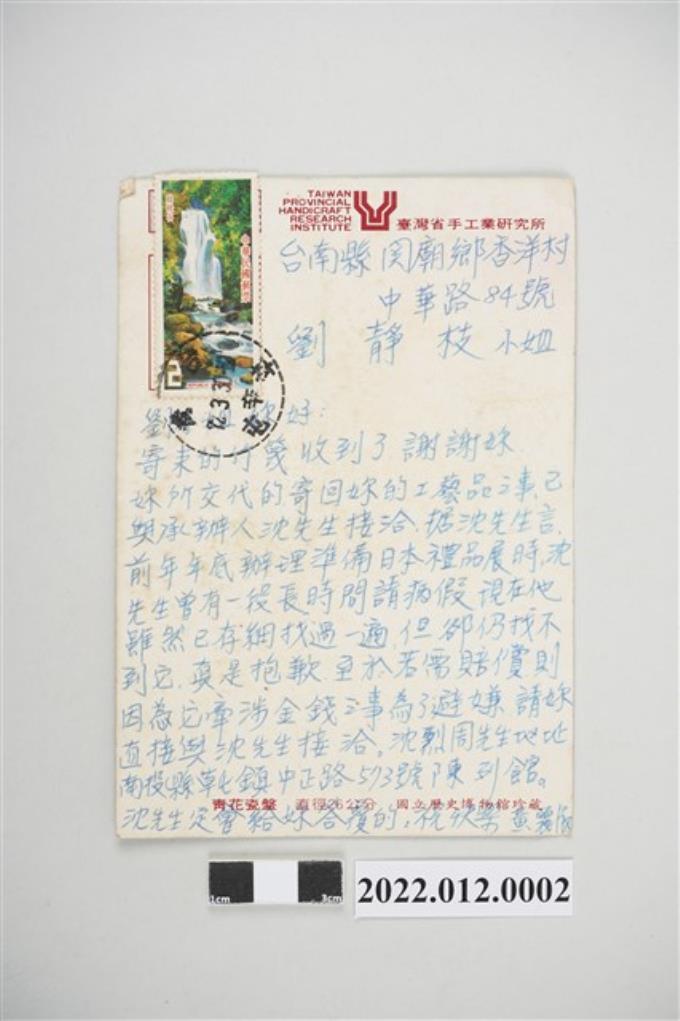 TAIWAN
PROVINCIAL
HANDICRAFT
RESEARCH
INSTITUTE
臺灣省手工業研究所
中華民國郵票
2
台南縣関廟鄉香洋村
中華路84號
劉靜枝小姐
你好:
寄來的竹篾收到了謝謝妳
妳所交代的寄回妳的工藝品之事,已
與承辦人沈先生接洽.据沈先生言,
前年年底辦理準備日本禮品展時,沈
先生曾有一段長時間請病假,現在他
雖然已仔細找過一遍,但卻仍找不
到它,真是抱歉.至於若需賠償則
因為它牽涉金錢之事為了避嫌請妳
直接與沈先生接洽。沈烈周先生地址
南投縣草屯鎮中正路573號陳列館。
青花瓷盤 直徑26公分 國立歷史博物館珍藏
沈先生定會給妳答覆的。祝快樂 黃
1cm
3cm
2022.012.0002